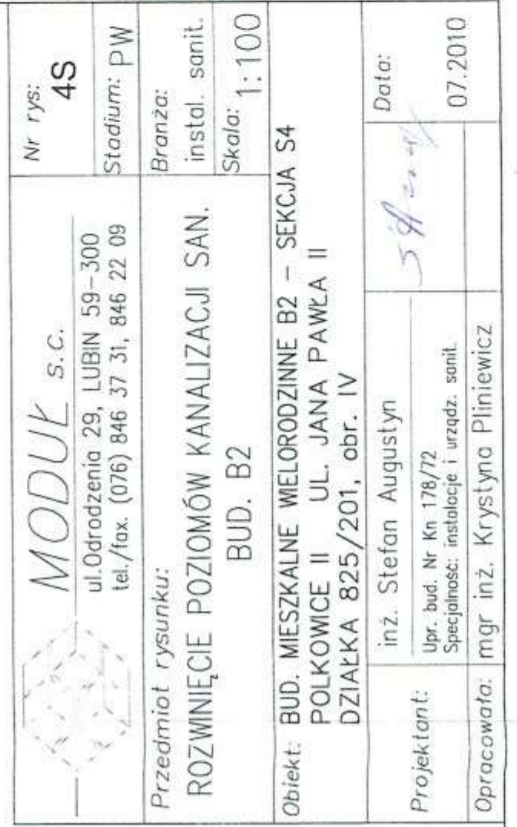 MODUŁ s.c.
ul.Odrodzenia 29, LUBIN 59-300
tel./fax. (076) 846 37 31, 846 22 09
Nr rys:
4S
Stadium: PW
Przedmiot rysunku:
ROZWINIĘCIE POZIOMÓW KANALIZACJI SAN.
BUD. B2
Branża:
instal. sanit.
Skala: 1:100
Obiekt: BUD. MIESZKALNE WELORODZINNE B2 - SEKCJA S4
POLKOWICE II UL. JANA PAWŁA II
DZIAŁKA 825/201, obr. IV
Projektant:
inż. Stefan Augustyn
Upr. bud. Nr Kn 178/72
Specjalność: instalacje i urządz. sanit.
Data:
07.2010
Opracowała: mgr inż. Krystyna Pliniewicz